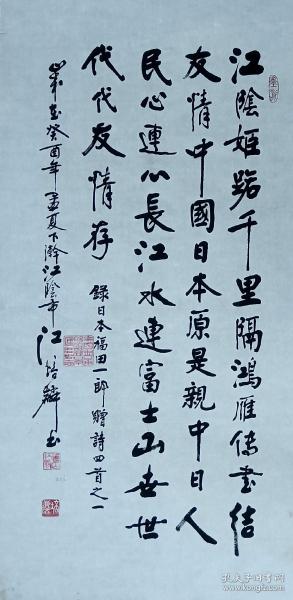 江陰姬路千里隔鴻雁传書结
友情中國日本原是親中日人
民心連心長江水連富士山世世
代代友情存
録日本福田一郎赠詩四首之一
歲在癸酉年孟夏下澣江陰市江培麟书
孔夫子旧书网
www.kongfz.com